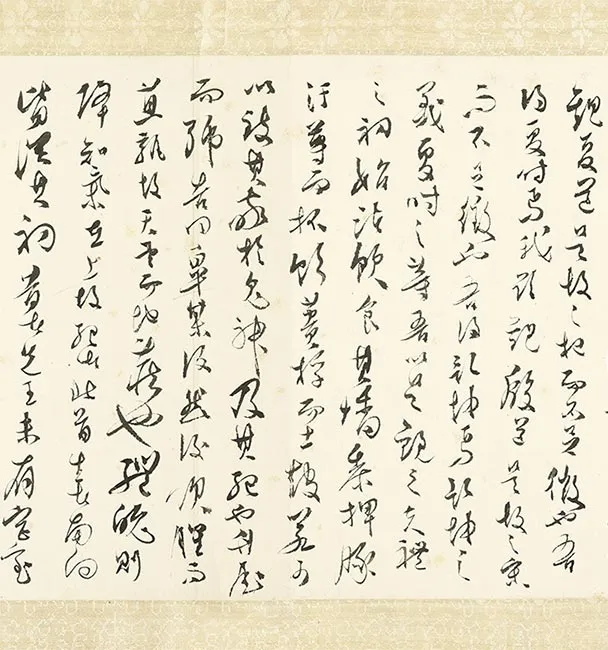 觀夏道是故之杞而不足徵也吾
得夏時焉我欲觀殷道是故之宋
而不足徵也吾得乾坤焉乾坤之
義夏時之等吾以是觀之夫禮
之初始諸飲食其燔黍捭豚
汙尊而抔飲蕢桴而土鼓若可
以致其敬於鬼神及其死也升屋
而號告曰皋某復然後飯腥而
苴孰故天望而地藏也體魄則
降知氣在上故死者北首生者南向
皆從其初昔者先王未有宮室